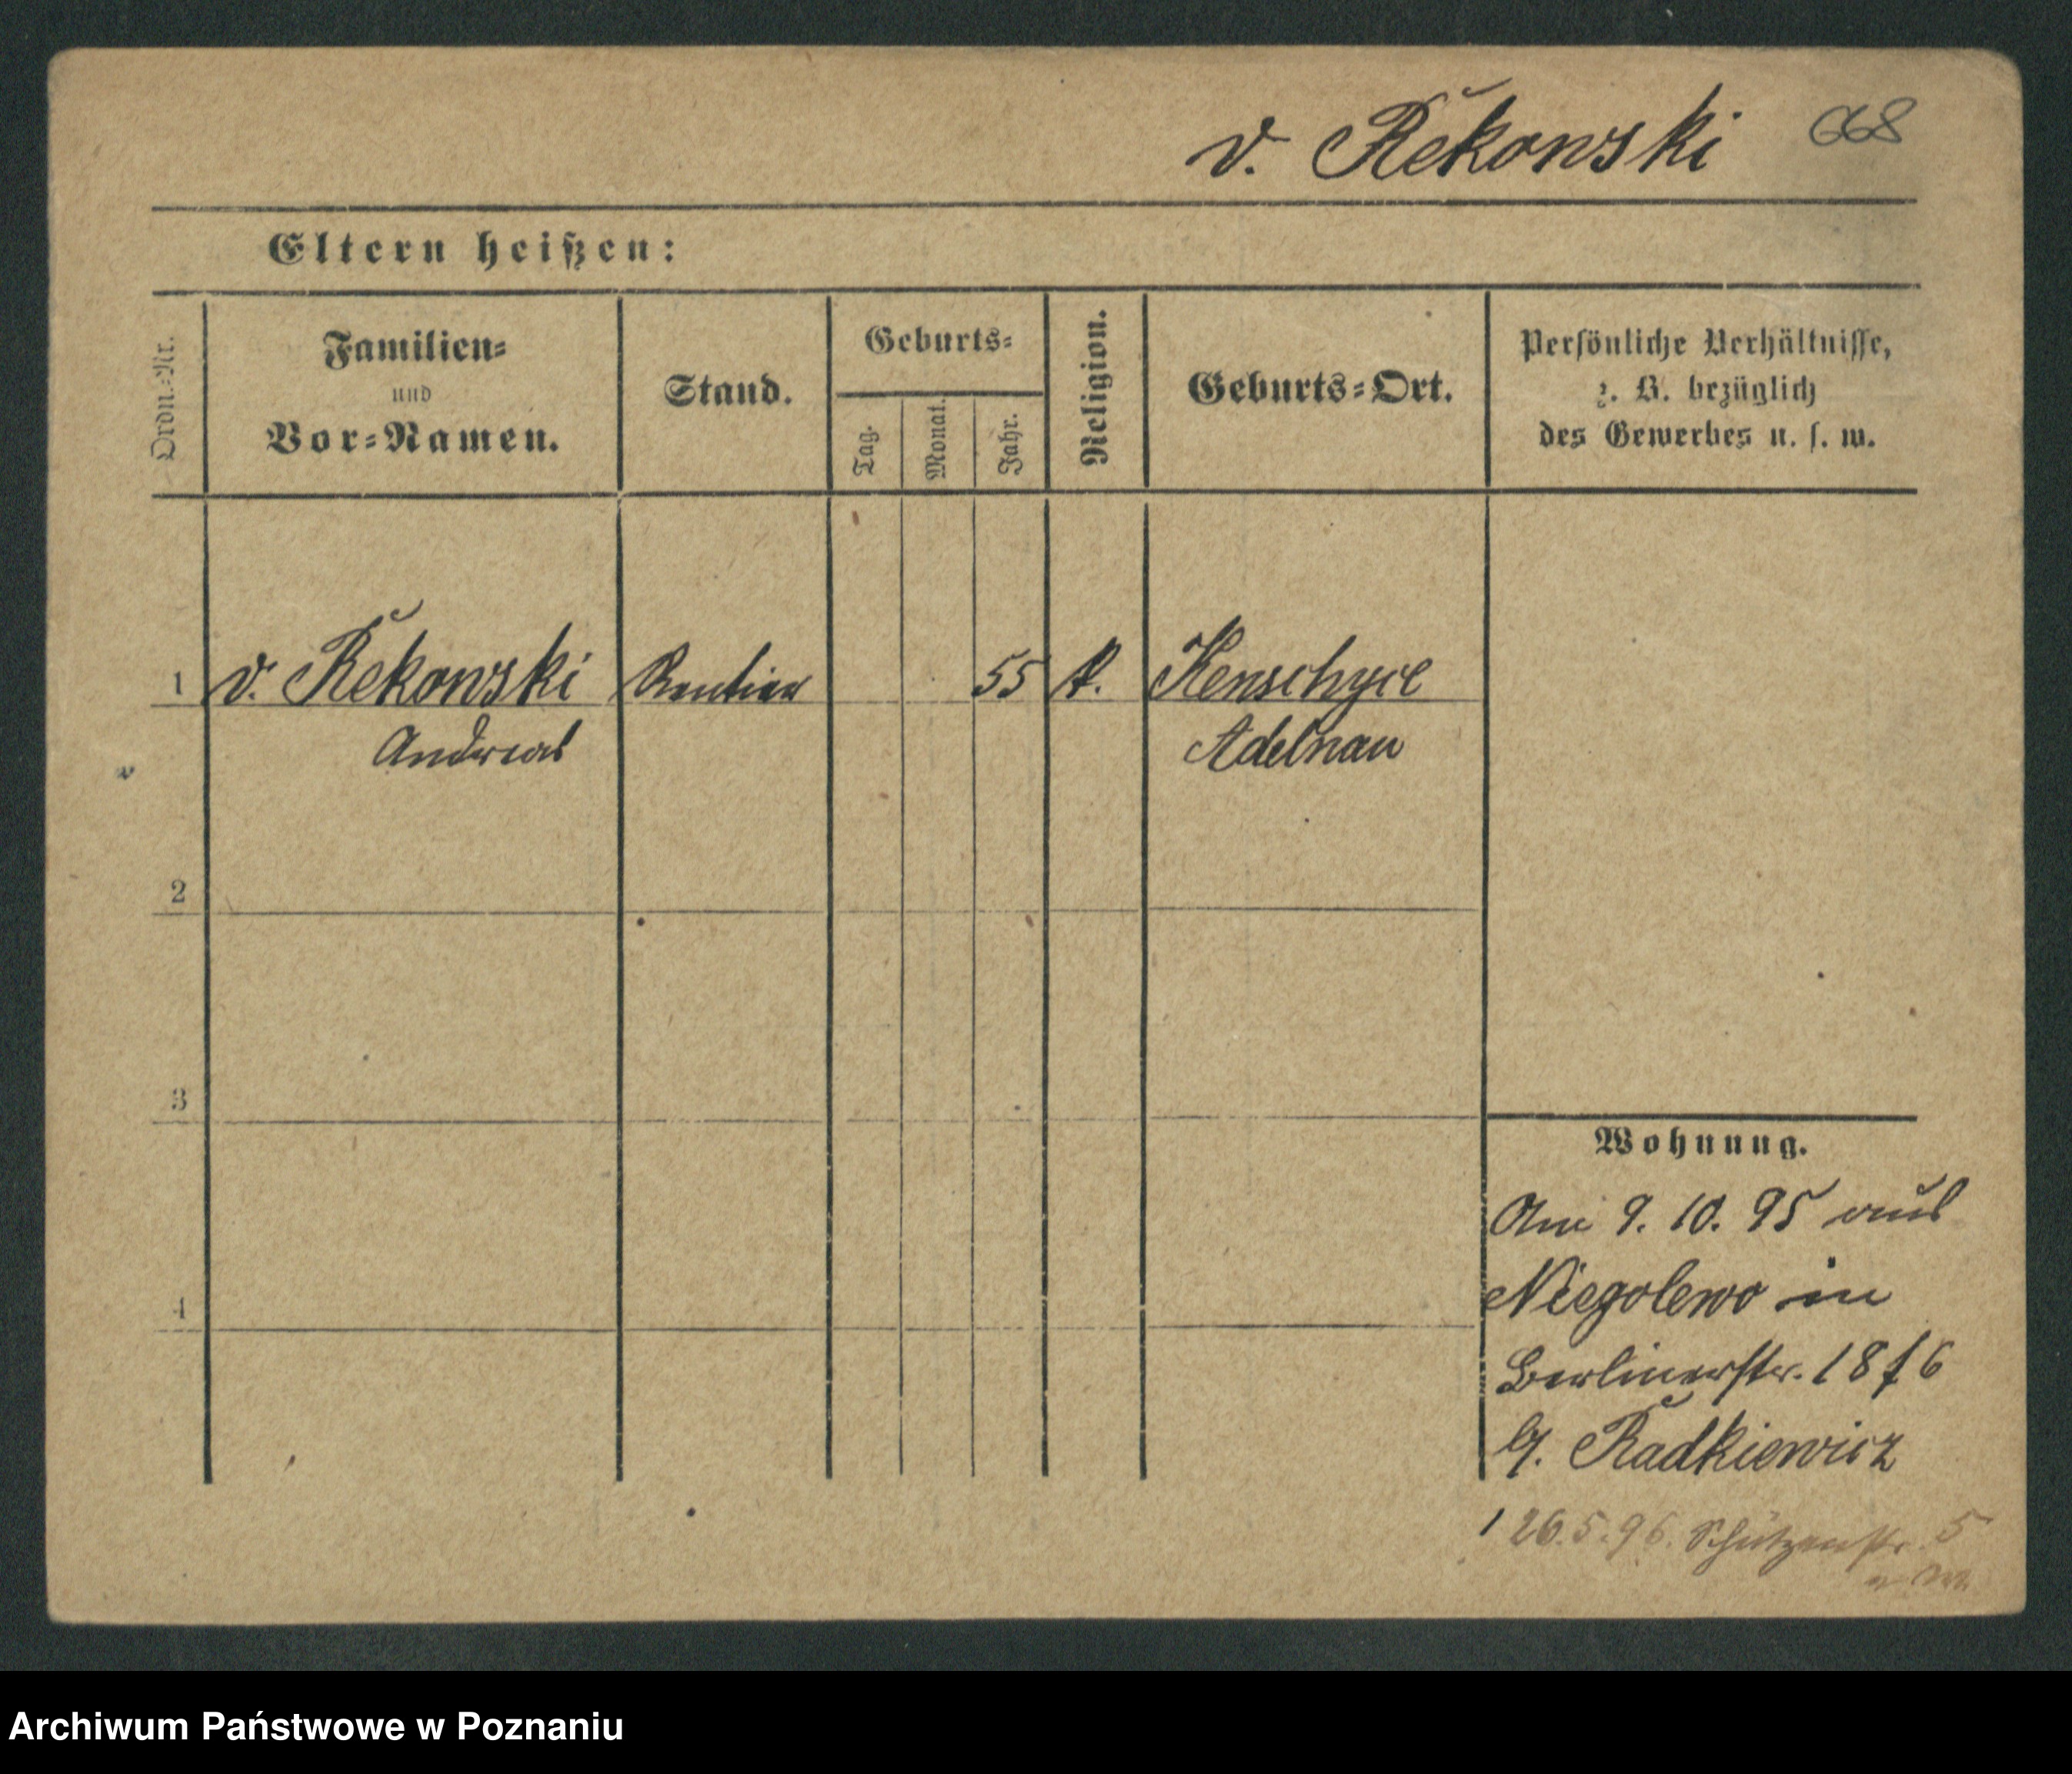 v. Rekowski 668
Eltern heißen:
Ordn.-Nr.
Familien-
und
Vor-Namen.
Stand.
Geburts-
Tag.
Monat.
Jahr.
Religion.
Geburts-Ort.
Persönliche Verhältnisse,
z. B. bezüglich
des Gewerbes u. s. w.
1 v. Rekowski Rentier 55 k.
Andreas Adelnau
2
3
4
Wohnung.
Am 9. 10. 95 aus
Niegolewo in
Berlinerstr. 18
Radkiewicz
26.5.96. Schützenstr. 5
Archiwum Państwowe w Poznaniu